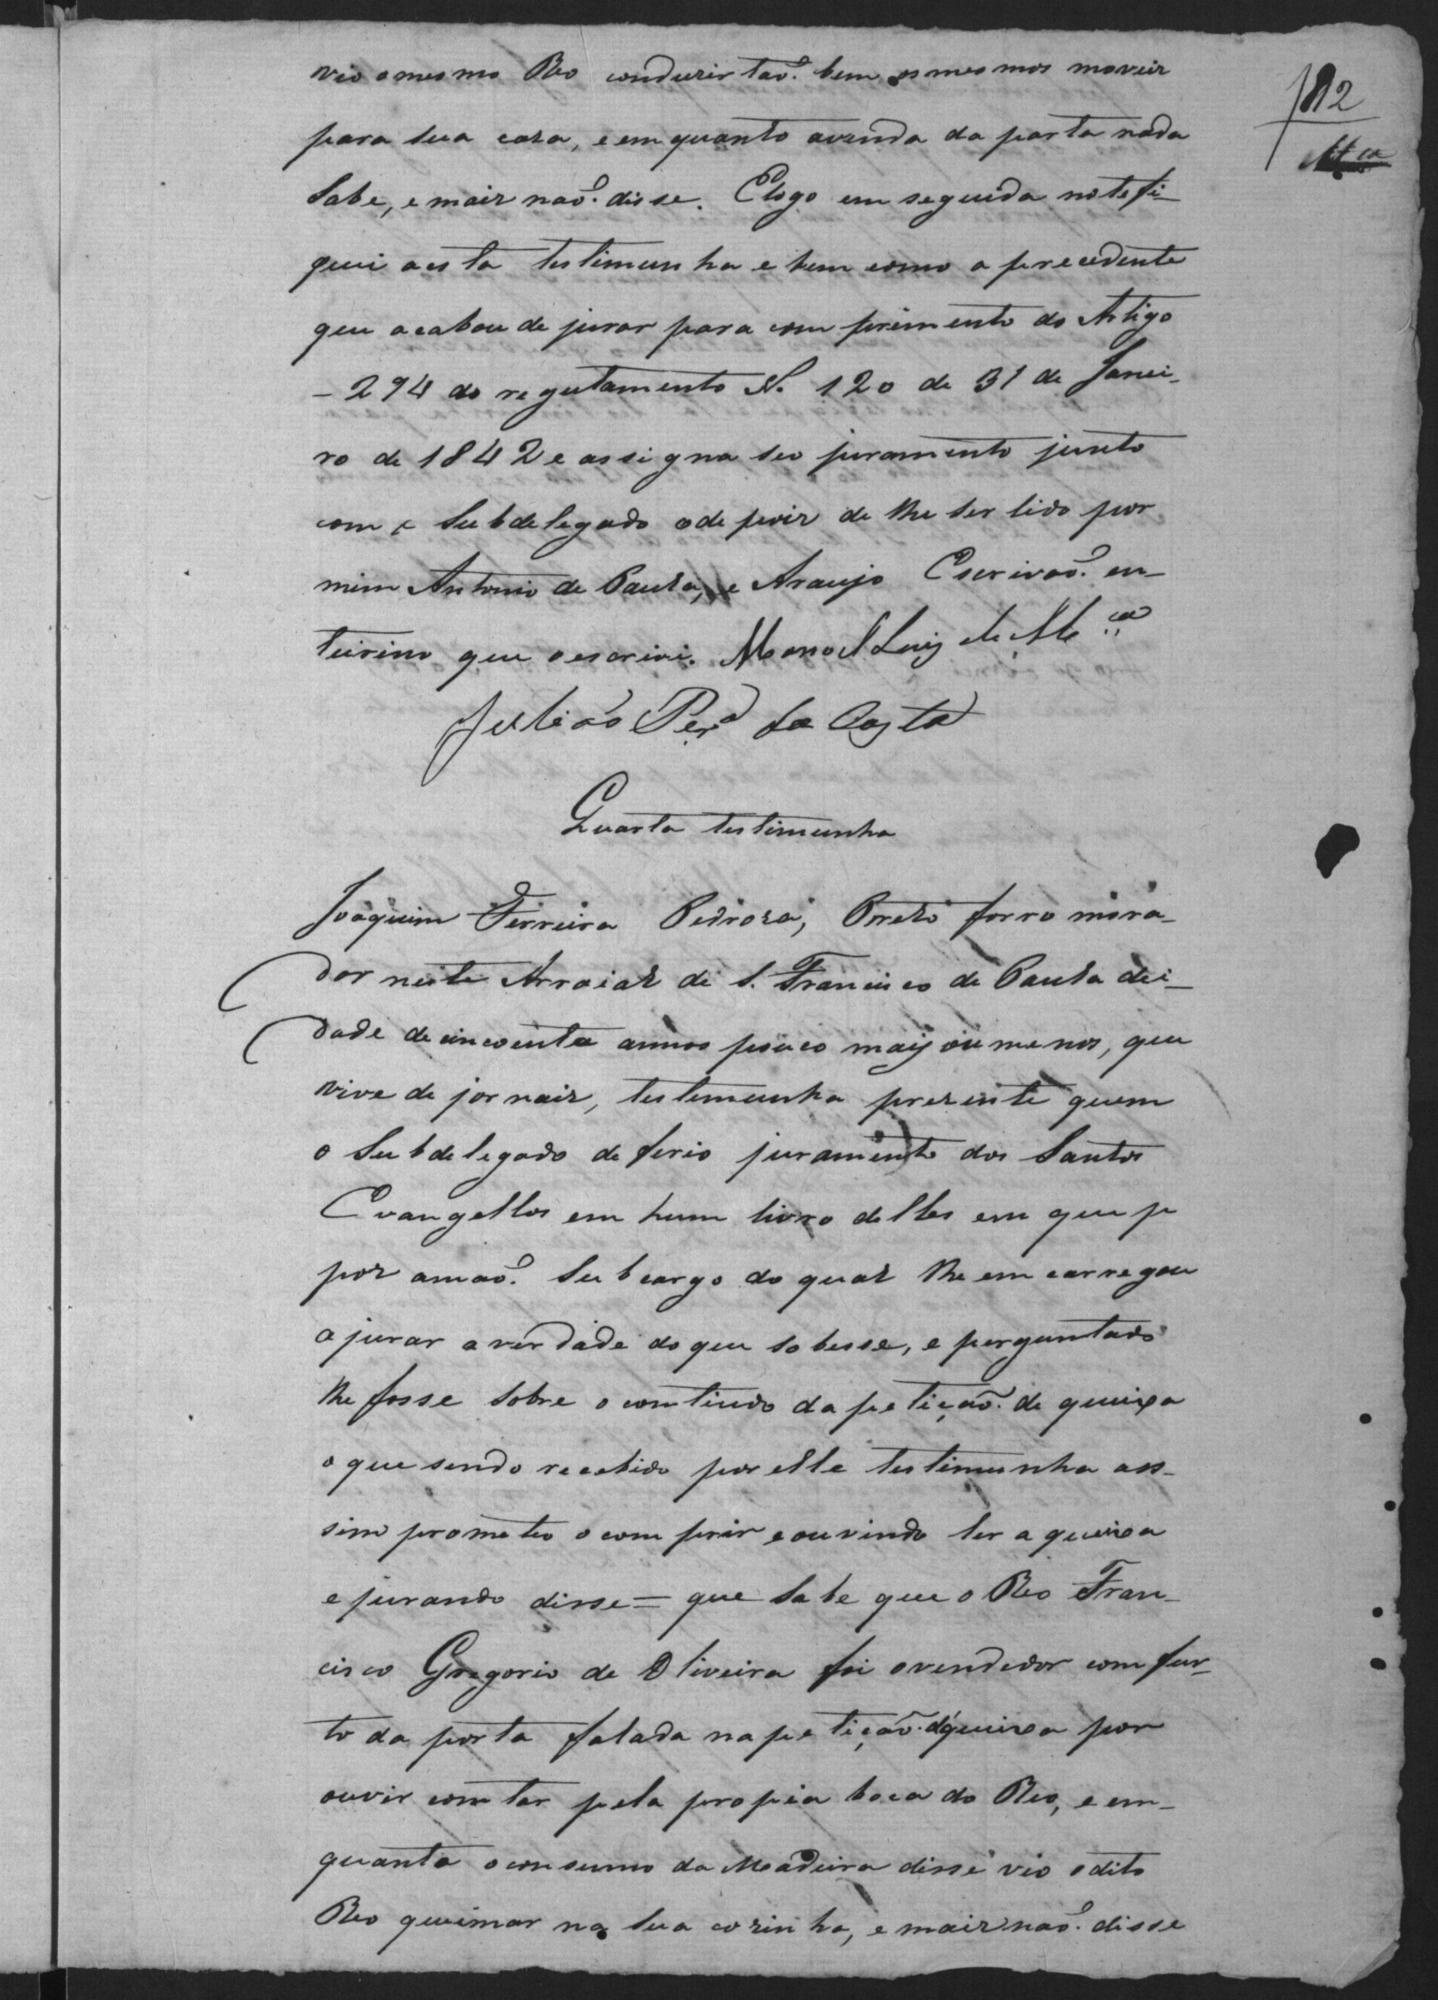 182
vio o mesmo Reo conduzir tão. bem os mesmos moveis
para sua caza, e em quanto a venda da porta nada
Sabe, e mais não. disse. E logo em seguida notefi-
quei a esta testimunha e bem como a precedente
que acabou de jurar para comprimento do Artigo
- 294 do regulamento N. 120 de 31 de Janei-
ro de 1842 e assigna seo juramento junto
com o Subdelegado e depois de lhe ser lido por
mim Antonio de Paula, e Araujo Escrivão. en-
teirino que o escrivi. Manoel Luiz de
Julião Per.a da Costa
Quarta testimunha
Joaquim Ferreira Pedroza, Preto forro mora-
dor neste Arraial de S. Francisco de Paula de i-
dade de cincoenta annos pouco mais ou menos, que
vive de jornais, testemunha prezente quem
o Subdelegado deferio juramento dos Santos
Evangellos em hum livro delles em que p
poz a mão. Sub cargo do qual lhe emcarregou
a jurar a verdade do que sobesse, e perguntado
lhe fosse sobre o contiudo da petição. de queixa
o que sendo recebido por elle testimunha as-
sim prometeo o comprir e ouvindo ler a queixa
e jurando disse = que Sabe que o Reo Fran-
cisco Gregorio de Oliveira foi o vendedor com fur-
to da porta falada na petição. d'queixa por
ouvir contar pela propia boca do Reo, e em-
quanto o consumo da Madeira disse vio o dito
Reo queimar na Sua cozinha, e mais não. disse